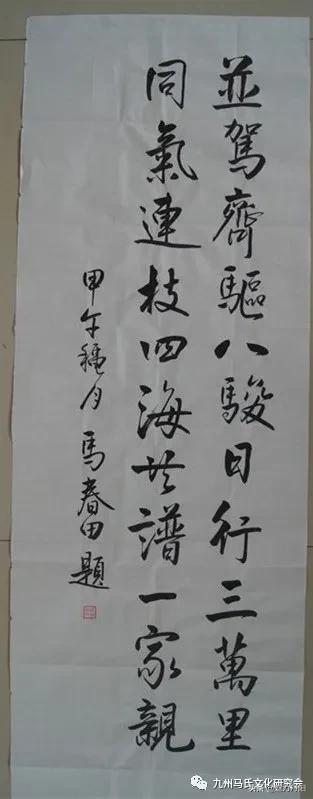 並駕齊驅八駿日行三萬里
同氣連枝四海共譜一家親
甲午穐月 馬春田 題
九州马氏文化研究会